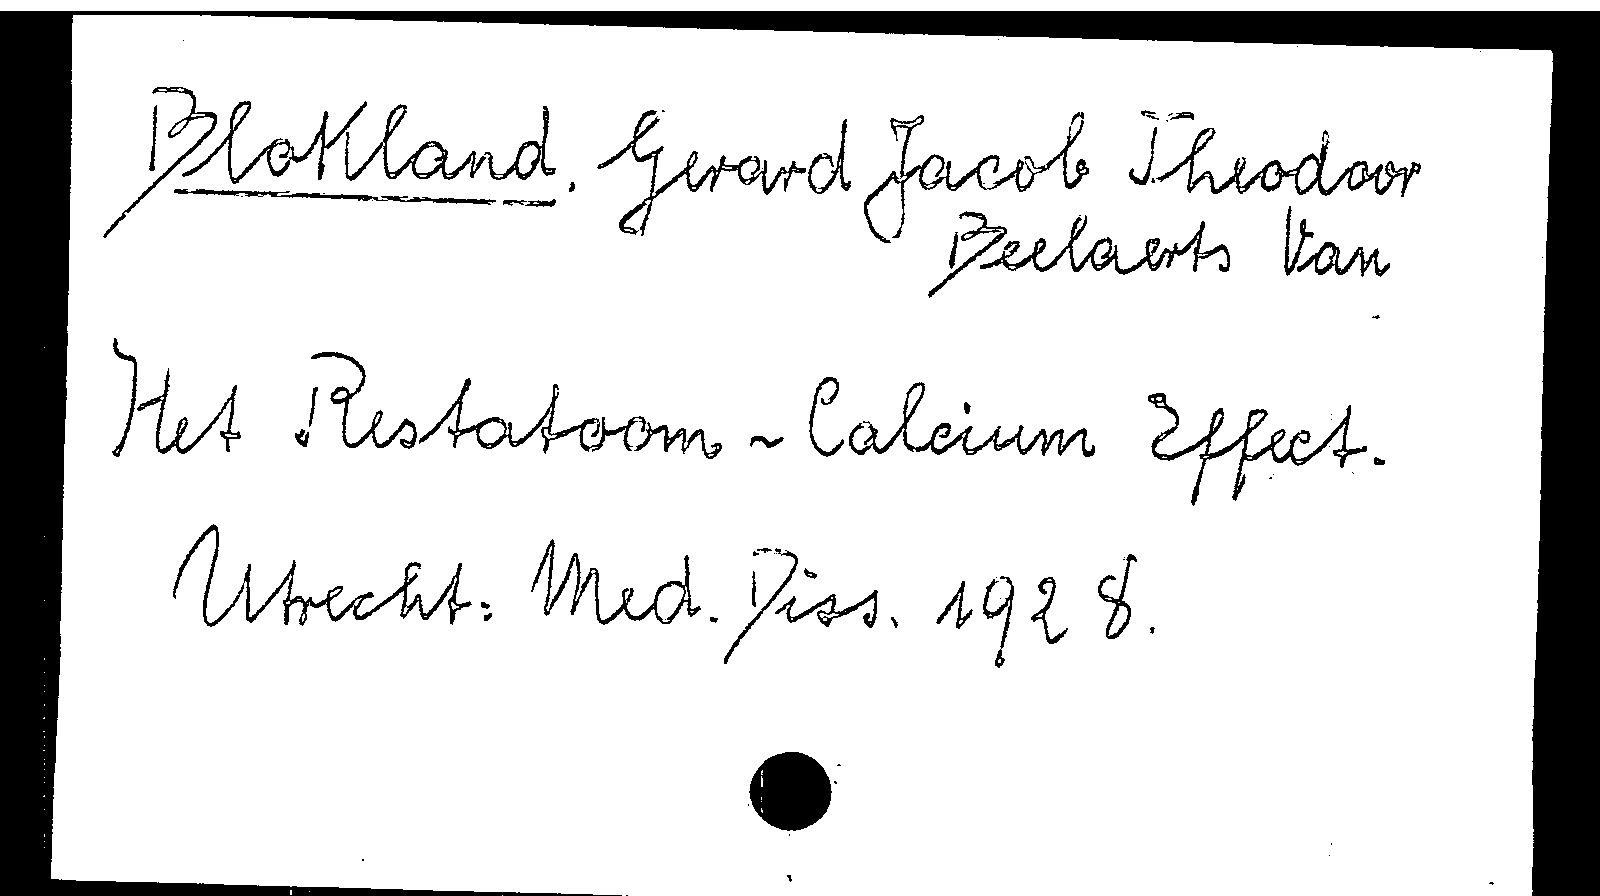 Blokland, Gerard Jacob Theodoor
Beelaerts Van
Het Restatoom - Calcium Effect.
Utrecht: Med. Diss. 1928.